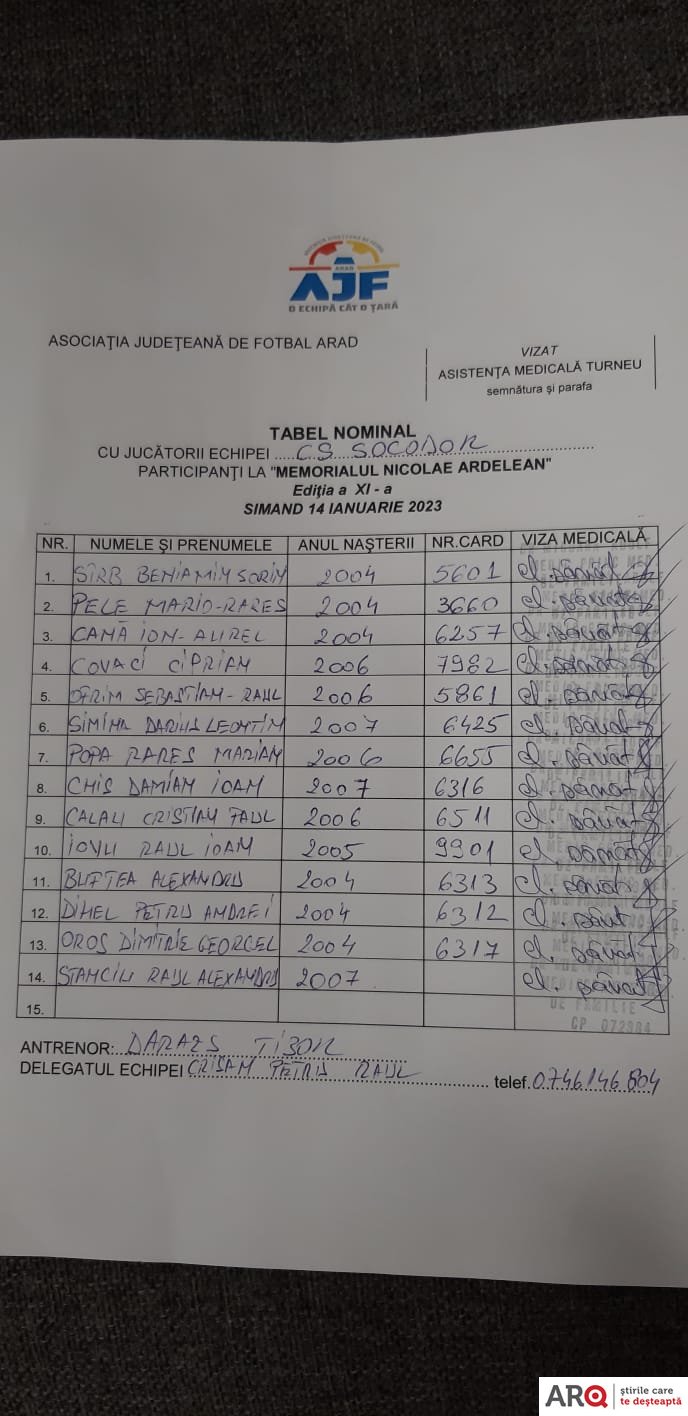 ARAD
AJF
O ECHIPĂ CÂT O ȚARĂ
ASOCIAȚIA JUDEȚEANĂ DE FOTBAL ARAD
VIZAT
ASISTENȚA MEDICALĂ TURNEU
semnătura și parafa
TABEL NOMINAL
CU JUCĂTORII ECHIPEI CS SOCODOR
PARTICIPANȚI LA "MEMORIALUL NICOLAE ARDELEAN"
Ediția a XI - a
SIMAND 14 IANUARIE 2023
NR. NUMELE ȘI PRENUMELE ANUL NAȘTERII NR.CARD VIZA MEDICALĂ
1. SÎRB BENIAMIN SORIN 2004 5601 cl. sănăt
2. PELE MARIO-RARES 2004 3660 cl. sănăt
3. CAMĂ ION-AUREL 2004 6257 cl. sănăt
4. COVACI CIPRIAN 2006 7982 cl. sănăt
5. SEBASTIAN-RAUL 2006 5861 cl. sănăt
6. SIMINA DARIUS LEONTIN 2007 6425 cl. sănăt
7. POPA RARES MARIAN 2006 6655 cl. sănăt
8. CHIS DAMIAN IOAN 2007 6316 cl. sănăt
9. CALAU CRISTIAN PAUL 2006 6511 cl. sănăt
10. IOVU RAUL IOAN 2005 9901 cl. sănăt
11. BUFTEA ALEXANDRU 2004 6313 cl. sănăt
12. DIHEL PETRU ANDREI 2004 6312 cl.
13. OROS DIMITRIE GEORGEL 2004 6317 cl. sănăt
14. STANCIU RAUL ALEXANDRU 2007 cl. sănăt
15.
DE FAMILIE
CP 072984
ANTRENOR: DARAZS TIBOR
DELEGATUL ECHIPEI CRISAN PETRU RAUL telef. 0746146804
ARQ știrile care
te deșteaptă